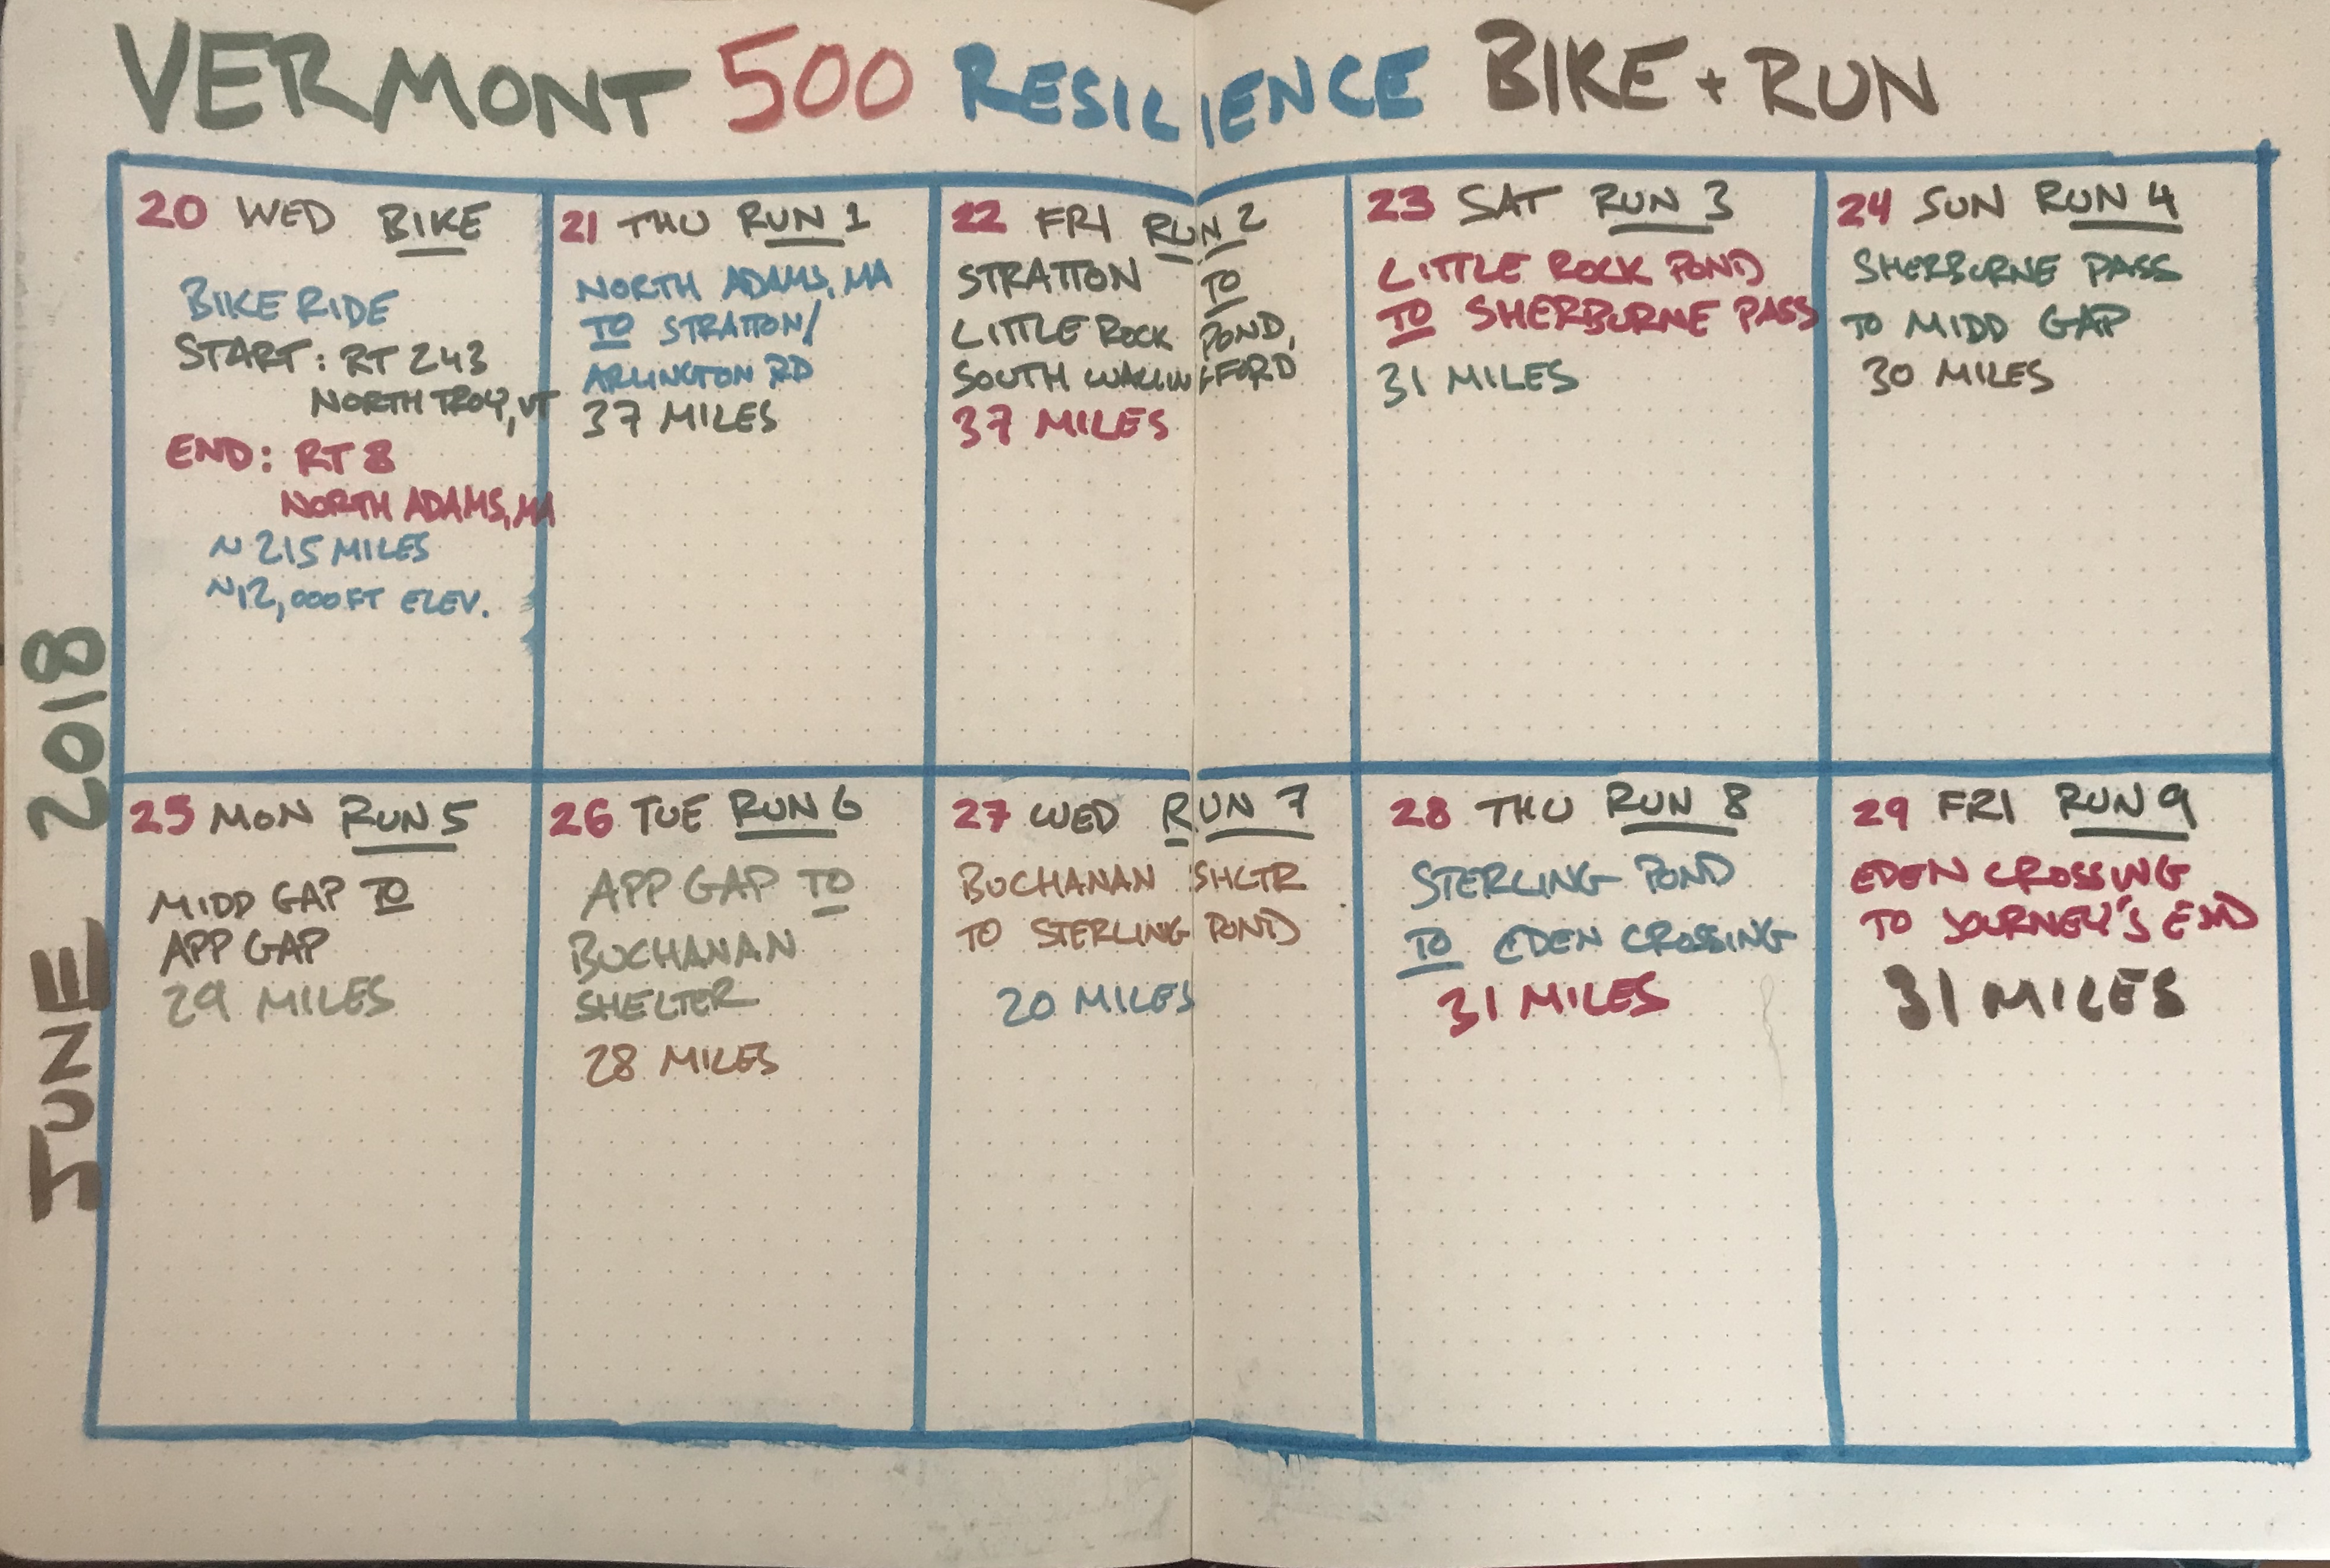 VERMONT 500 RESILIENCE BIKE + RUN
JUNE 2018
20 WED BIKE
BIKE RIDE
START: RT 243
NORTH TROY, VT
END: RT 8
NORTH ADAMS, MA
~ 215 MILES
~12,000FT ELEV.
21 THU RUN 1
NORTH ADAMS, MA
TO STRATTON/
ARLINGTON RD
37 MILES
22 FRI RUN 2
STRATTON TO
LITTLE ROCK POND,
SOUTH WALLINGFORD
37 MILES
23 SAT RUN 3
LITTLE ROCK POND
TO SHERBURNE PASS
31 MILES
24 SUN RUN 4
SHERBURNE PASS
TO MIDD GAP
30 MILES
25 MON RUN 5
MIDD GAP TO
APP GAP
29 MILES
26 TUE RUN 6
APP GAP TO
BUCHANAN
SHELTER
28 MILES
27 WED RUN 7
BUCHANAN SHLTR
TO STERLING POND
20 MILES
28 THU RUN 8
STERLING POND
TO EDEN CROSSING
31 MILES
29 FRI RUN 9
EDEN CROSSING
TO JOURNEY'S END
31 MILES